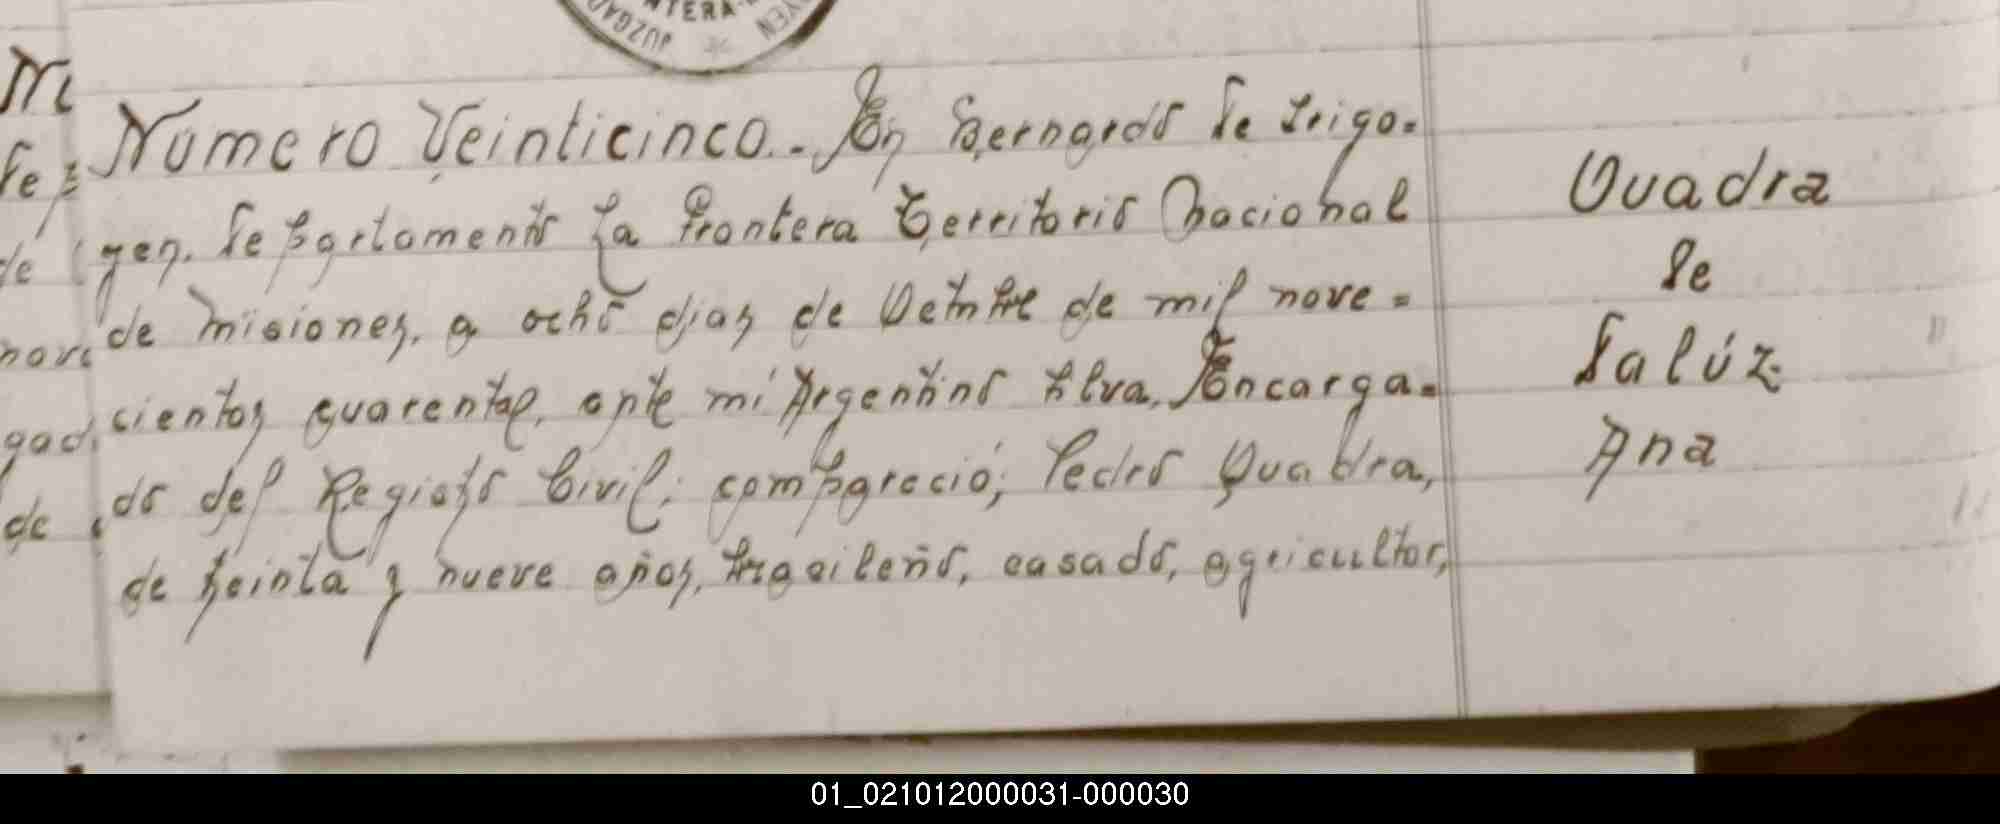 JUZGAD NTERA YEN
Numero Veinticinco.- En Bernardo de Irigo=
yen. Departamento La Frontera Territorio Nacional
de Misiones, a ocho dias de Octubre de mil nove=
cientos cuarenta, ante mi Argentino Alva, Encarga=
do del Registro Civil; compareció; Pedro Quadra,
de treinta y nueve años, brasileño, casado, agricultor,
Quadra
De
Saluz
Ana
01_021012000031-000030